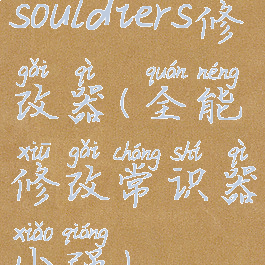 souldiers修
gǎi qì quán néng
改器(全能
xiū gǎi cháng shí qì
修改常识器
xiǎo qiáng
小强)